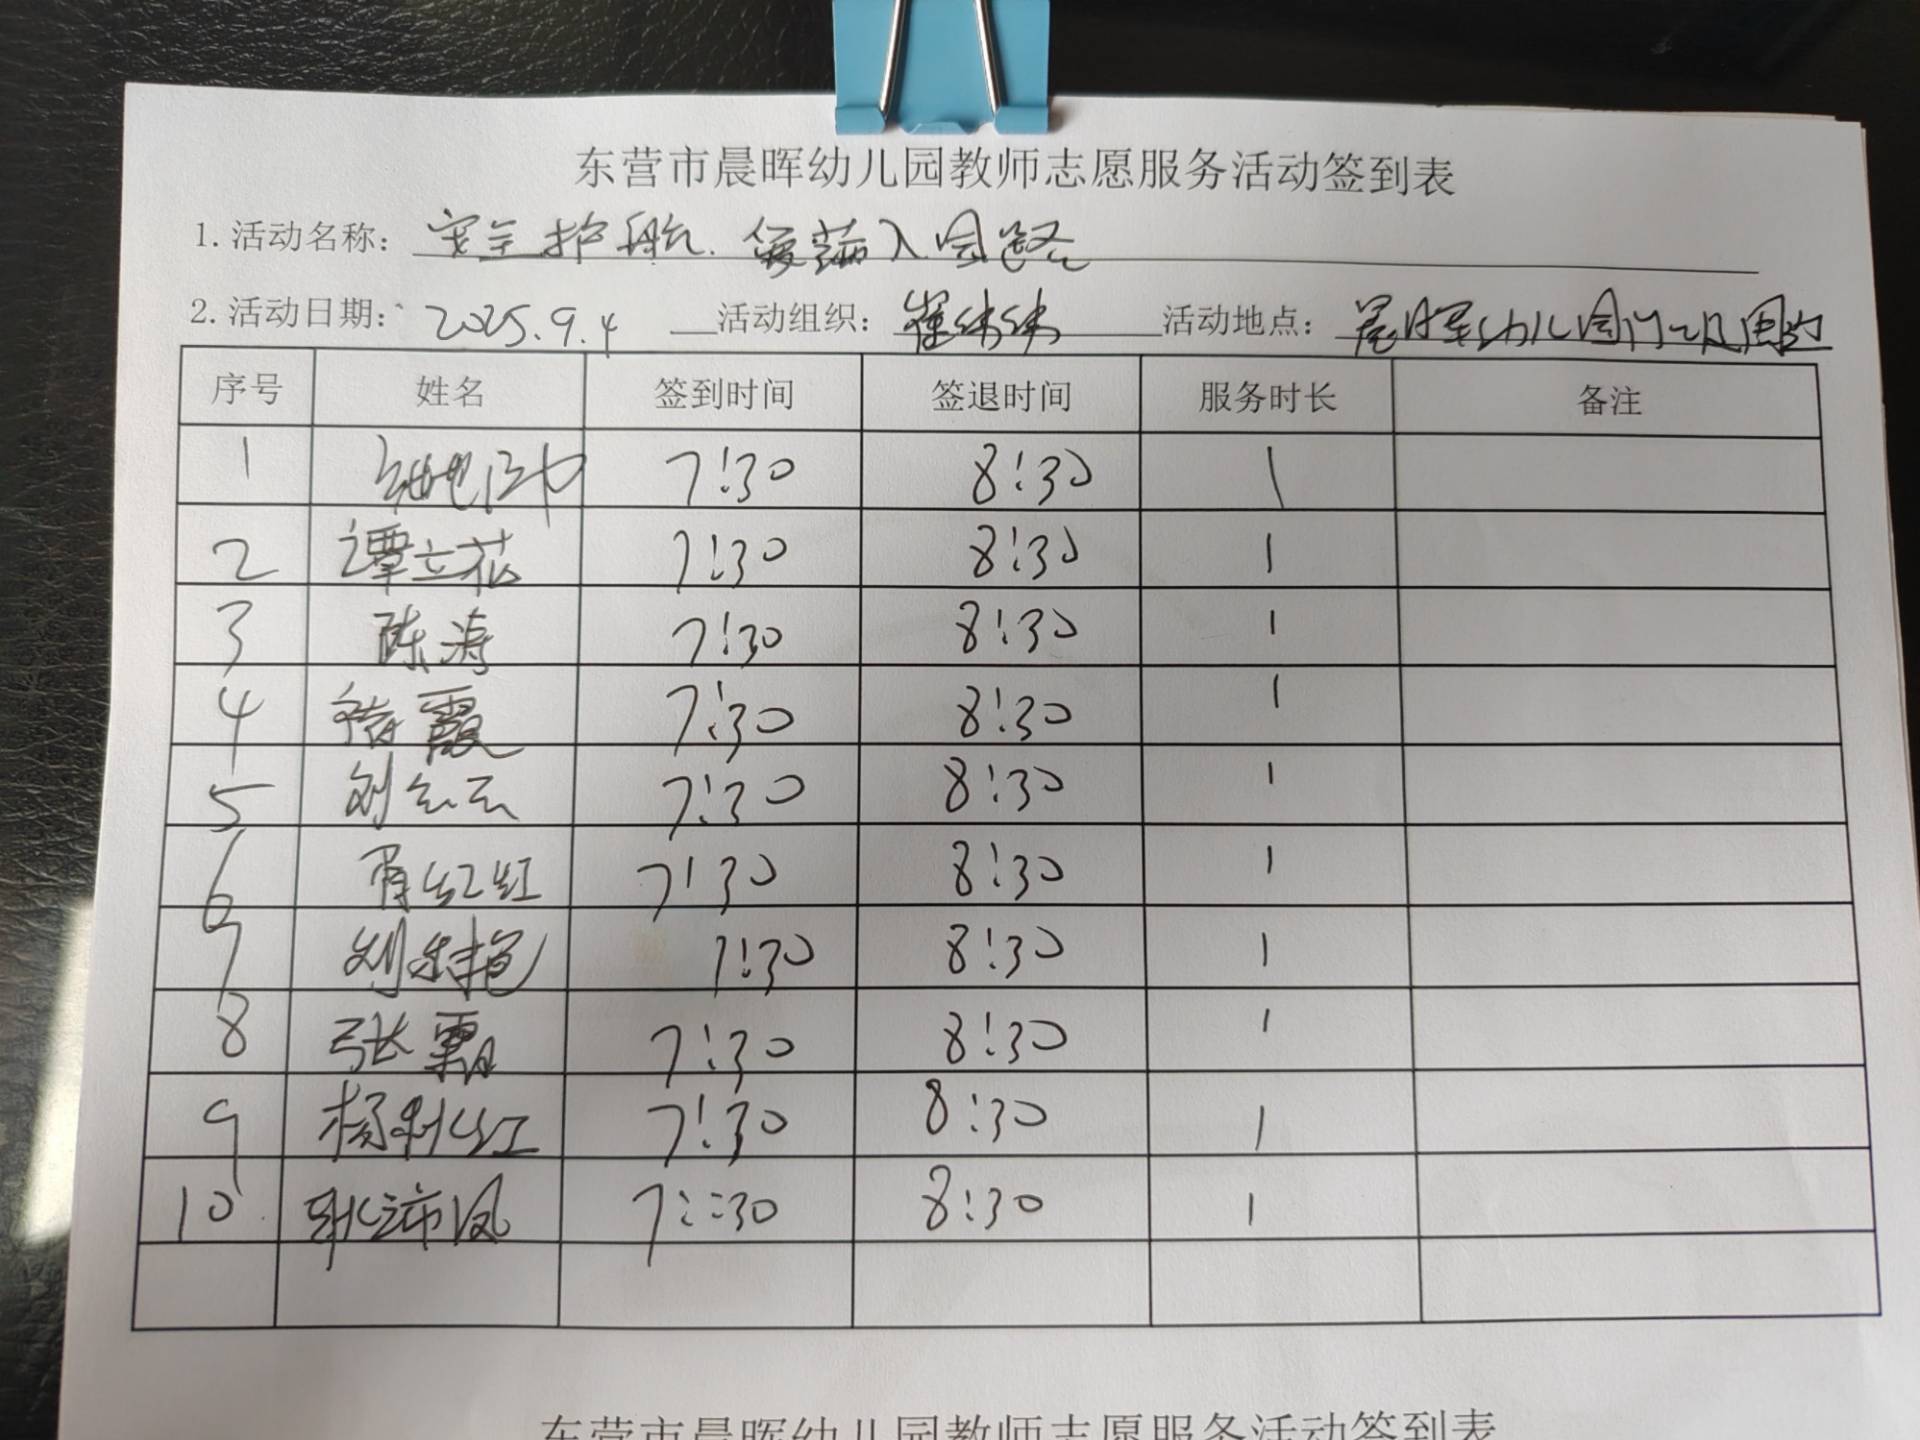 东营市晨晖幼儿园教师志愿服务活动签到表
1.活动名称：安全护航.入园路
2.活动日期：2025.9.4 活动组织：崔 活动地点：晨晖幼儿园门口及周边
序号 姓名 签到时间 签退时间 服务时长 备注
1 7:30 8:30 1
2 谭立花 7:30 8:30 1
3 陈涛 7:30 8:30 1
4 霞 7:30 8:30 1
5 刘云云 7:30 8:30 1
6 肖红红 7:30 8:30 1
7 刘艳 7:30 8:30 1
8 张霜 7:30 8:30 1
9 杨秋红 7:30 8:30 1
10 耿沛凤 7:30 8:30 1
东营市晨晖幼儿园教师志愿服务活动签到表